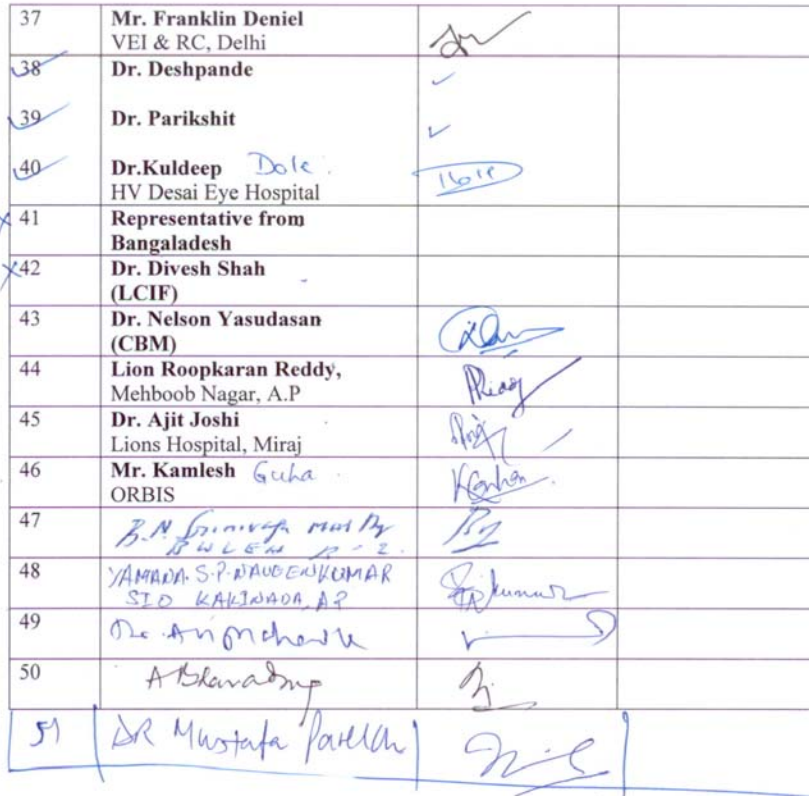 37 Mr. Franklin Deniel
VEI & RC, Delhi
38 Dr. Deshpande
39 Dr. Parikshit
40 Dr.Kuldeep Dole
HV Desai Eye Hospital
41 Representative from
Bangaladesh
42 Dr. Divesh Shah
(LCIF)
43 Dr. Nelson Yasudasan
(CBM)
44 Lion Roopkaran Reddy,
Mehboob Nagar, A.P
45 Dr. Ajit Joshi
Lions Hospital, Miraj
46 Mr. Kamlesh Guha
ORBIS
47 B.N.
48 YAMANA.S.P.NAVEENKUMAR
KAKINADA, AP
49
50
51 DR Mustafa Parekh